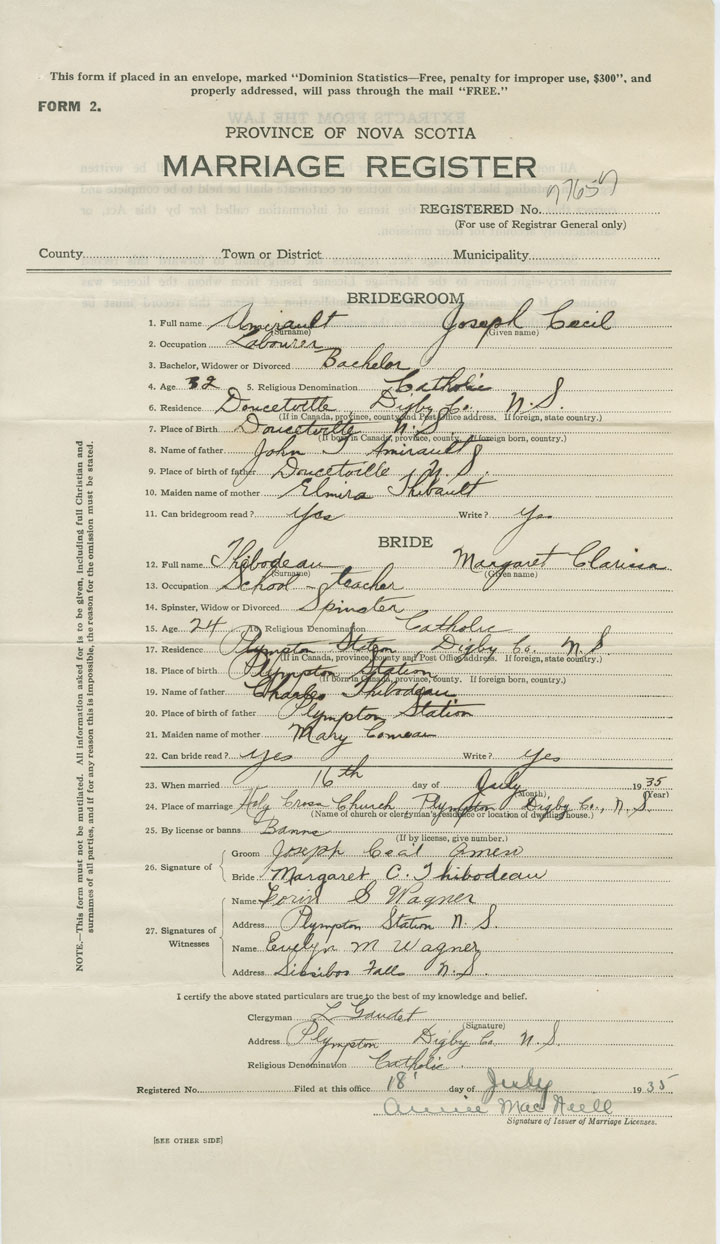 This form if placed in an envelope, marked "Dominion Statistics—Free, penalty for improper use, $300", and
properly addressed, will pass through the mail "FREE."
FORM 2.
PROVINCE OF NOVA SCOTIA
MARRIAGE REGISTER
REGISTERED No. 77657
(For use of Registrar General only)
County Town or District Municipality
BRIDEGROOM
1. Full name Amirault Joseph Cecil
(Surname) (Given name)
2. Occupation Labourer
3. Bachelor, Widower or Divorced Bachelor
4. Age 32 5. Religious Denomination Catholic
6. Residence Doucetville Digby Co. N.S.
(If in Canada, province, county and Post Office address. If foreign, state country.)
7. Place of Birth Doucetville N.S.
(If born in Canada, province, county. If foreign born, country.)
8. Name of father John Amirault
9. Place of birth of father Doucetville N.S.
10. Maiden name of mother Elmira Thibault
11. Can bridegroom read? Yes Write? Yes
BRIDE
12. Full name Thibodeau Margaret Clarissa
(Surname) (Given name)
13. Occupation School-teacher
14. Spinster, Widow or Divorced Spinster
15. Age 24 16. Religious Denomination Catholic
17. Residence Plympton Station Digby Co. N.S
(If in Canada, province, county and Post Office address. If foreign, state country.)
18. Place of birth Plympton Station
(If born in Canada, province, county. If foreign born, country.)
19. Name of father Charles Thibodeau
20. Place of birth of father Plympton Station
21. Maiden name of mother Mary Comeau
22. Can bride read? Yes Write? Yes
23. When married 16th day of July 1935
(Month) (Year)
24. Place of marriage Holy Cross Church Plympton Digby Co., N.S.
(Name of church or clergyman's residence or location of dwelling house.)
25. By license or banns Banns
(If by license, give number.)
26. Signature of
Groom Joseph Cecil
Bride Margaret C. Thibodeau
27. Signatures of Witnesses
Name S Wagner
Address Plympton Station N.S.
Name Evelyn M Wagner
Address Sissiboo Falls N.S.
I certify the above stated particulars are true to the best of my knowledge and belief.
Clergyman L Gaudet
(Signature)
Address Plympton Digby Co. N.S.
Religious Denomination Catholic
Registered No. Filed at this office 18 day of July 1935
Annie MacNeill
Signature of Issuer of Marriage Licenses.
[SEE OTHER SIDE]
NOTE.—This form must not be mutilated. All information asked for is to be given, including full Christian and
surnames of all parties, and if for any reason this is impossible, the reason for the omission must be stated.